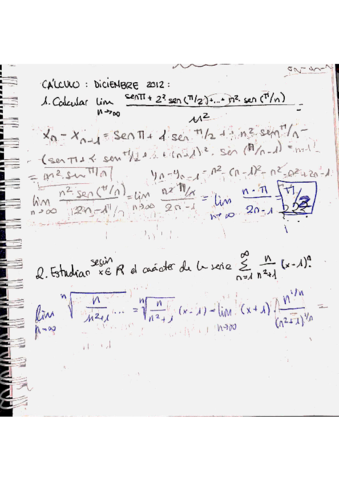 CÁLCULO : DICIEMBRE 2012 :
1. Calcular lim n→∞ (sen π + 2² sen (π/2) + ... + n² sen (π/n)) / n²
Xn - Xn-1 = sen π + 4 · sen π/2 + ... + n² sen π/n -
- (sen π + 4 · sen π/2 + ... + (n-1)² · sen (π/n-1)) =
= n² · sen π/n   yn - yn-1 = n² - (n-1)² = n² - n² + 2n - 1
lim n→∞ n² sen (π/n) / 2n-1 = lim n→∞ n² π/n / 2n-1 = lim n→∞ n · π / 2n-1 = π/2
2. Estudiar según x∈ℝ el carácter de la serie ∑ n=1 ∞ n/n²+1 (x-1)ⁿ.
lim n→∞ ⁿ√ n/n²+1 ... = ⁿ√ n/n²+1 (x-1) = lim n→∞ (x+1) · n^1/n / (n²+1)^1/n =